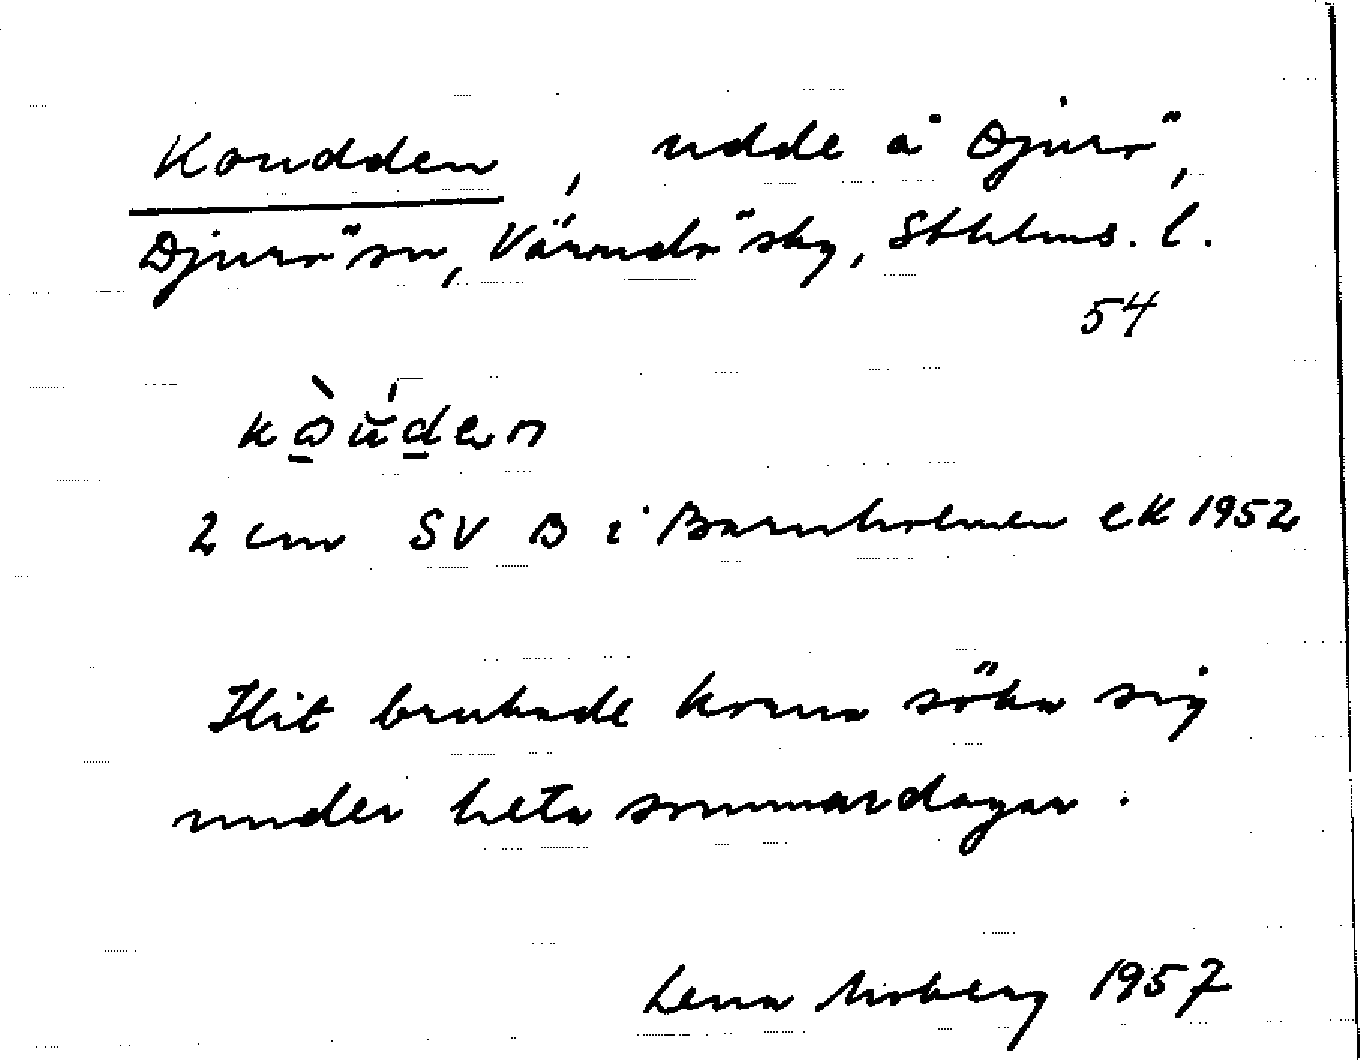 Koudden, udde å Djurö,
Djurö sn, Värmdö skg, Sthlms. l.
54
kòu̇den
2 cm SV B i Barnholmen ek 1952
Hit brukade korna söka sig
under heta sommardagar.
Lena Moberg 1957